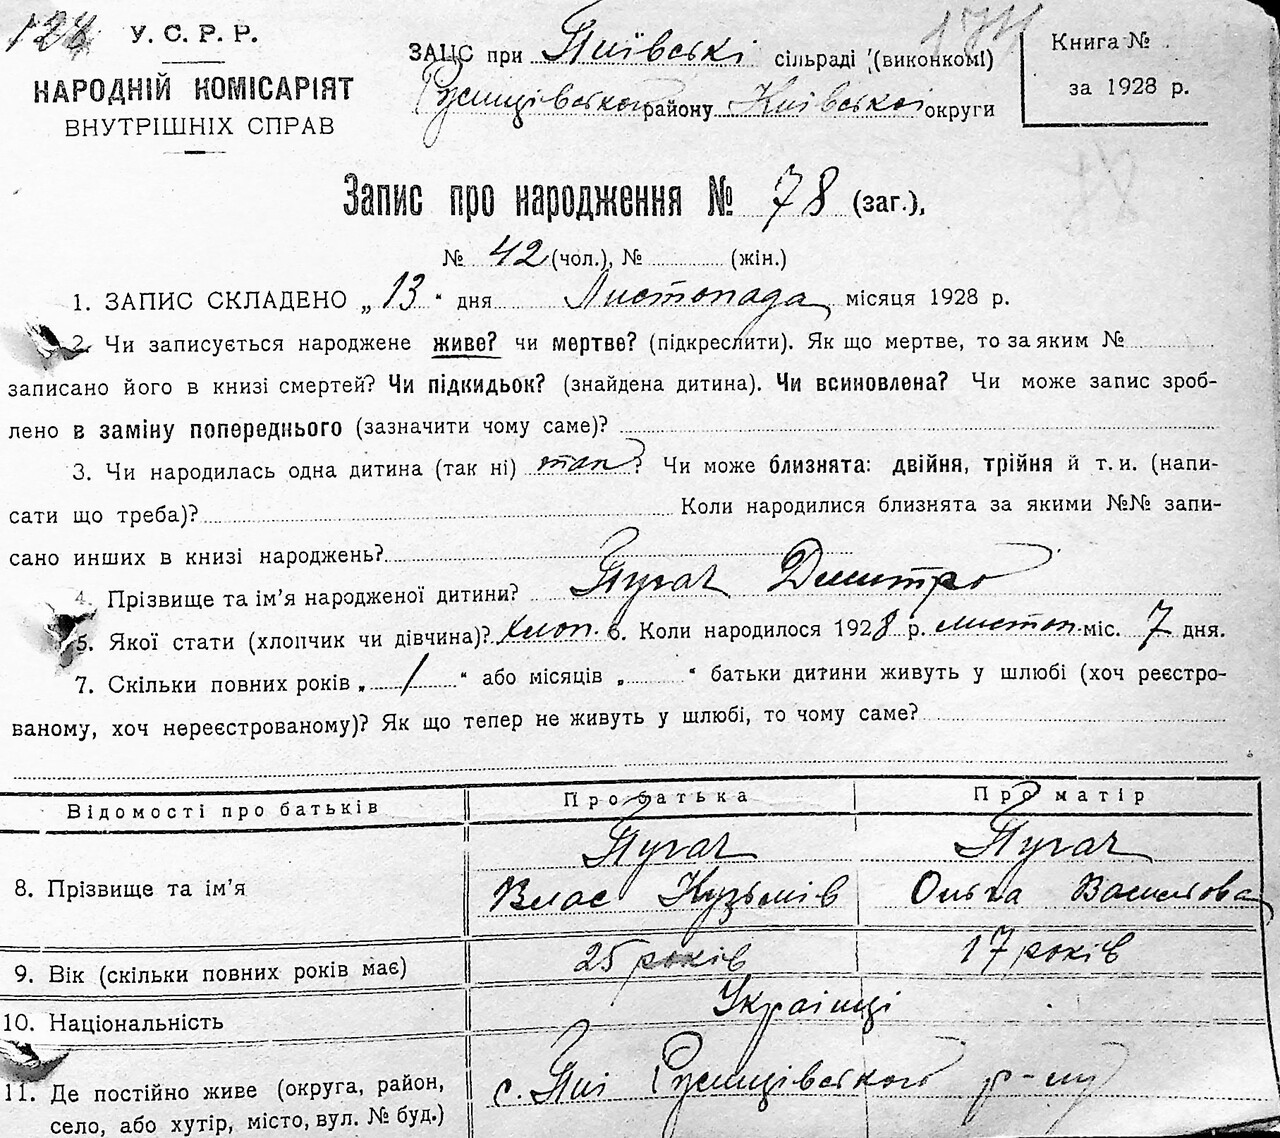 124
У. С. Р. Р.
НАРОДНІЙ КОМІСАРІЯТ
ВНУТРІШНІХ СПРАВ
ЗАЦС при Пиївські сільраді (виконкомі)
Ржищівського району Київської округи
Книга №
за 1928 р.
Запис про народження № 78 (заг.),
№ 42 (чол.), № (жін.)
1. ЗАПИС СКЛАДЕНО „ 13 " дня Листопада місяця 1928 р.
2. Чи записується народжене живе? чи мертве? (підкреслити). Як що мертве, то за яким №
записано його в книзі смертей? Чи підкидьок? (знайдена дитина). Чи всиновлена? Чи може запис зроб-
лено в заміну попереднього (зазначити чому саме)?
3. Чи народилась одна дитина (так ні) так? Чи може близнята: двійня, трійня й т. и. (напи-
сати що треба)? Коли народилися близнята за якими №№ запи-
сано инших в книзі народжень?
4. Прізвище та ім'я народженої дитини? Пугач Дмитро
5. Якої стати (хлопчик чи дівчина)? хлоп. 6. Коли народилося 1928 р. листоп. міс. 7 дня.
7. Скільки повних років „ 1 " або місяців „ " батьки дитини живуть у шлюбі (хоч реєстро-
ваному, хоч нереєстрованому)? Як що тепер не живуть у шлюбі, то чому саме?
Відомості про батьків Про батька Про матір
Пугач Пугач
8. Прізвище та ім'я Влас Кузьмів Ольга Василова
9. Вік (скільки повних років має) 25 років 17 років
10. Національність Українці
11. Де постійно живе (округа, район, с. Пиї Ржищівського р-ну
село, або хутір, місто, вул. № буд.)